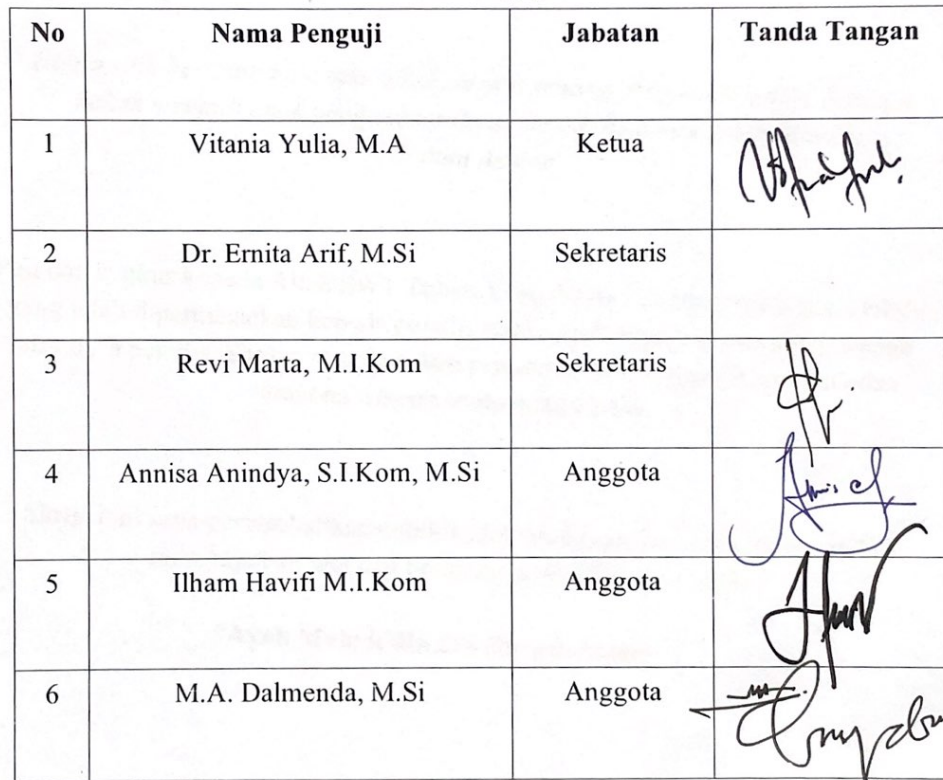 No Nama Penguji Jabatan Tanda Tangan
1 Vitania Yulia, M.A Ketua
2 Dr. Ernita Arif, M.Si Sekretaris
3 Revi Marta, M.I.Kom Sekretaris
4 Annisa Anindya, S.I.Kom, M.Si Anggota
5 Ilham Havifi M.I.Kom Anggota
6 M.A. Dalmenda, M.Si Anggota